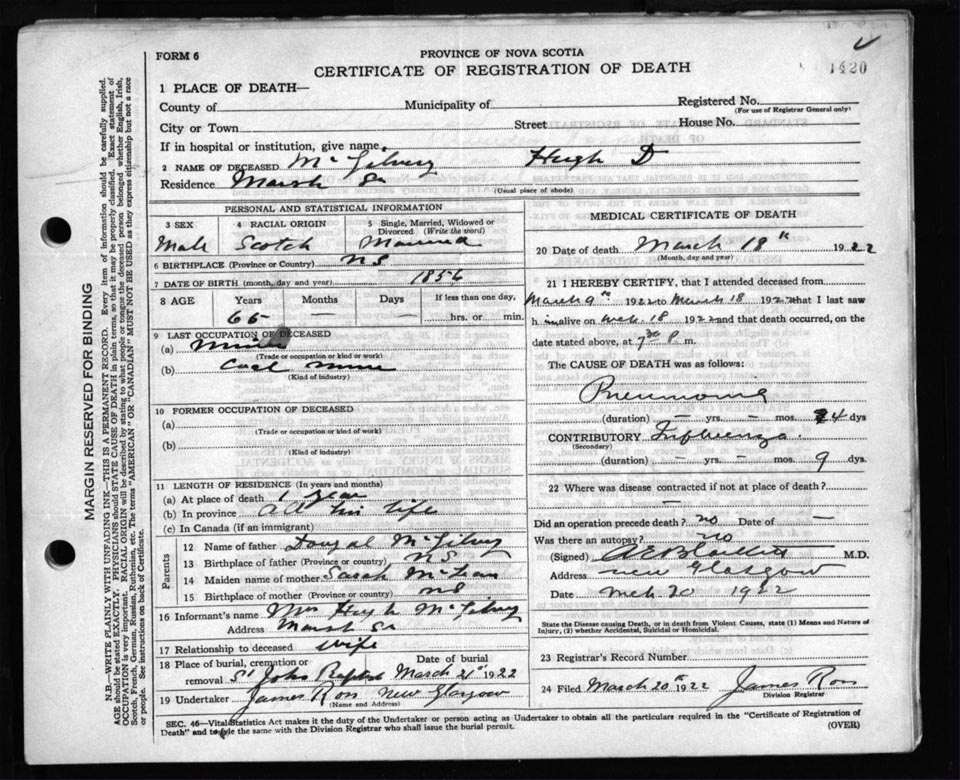 FORM 6
PROVINCE OF NOVA SCOTIA
1420
CERTIFICATE OF REGISTRATION OF DEATH
1 PLACE OF DEATH—
County of Municipality of Registered No.
(For use of Registrar General only)
City or Town Street House No.
If in hospital or institution, give name
2 NAME OF DECEASED McGilvery Hugh D
Residence Marsh St
(Usual place of abode)
PERSONAL AND STATISTICAL INFORMATION
3 SEX 4 RACIAL ORIGIN 5 Single, Married, Widowed or Divorced (Write the word)
Male Scotch Married
6 BIRTHPLACE (Province or Country) NS
7 DATE OF BIRTH (month, day and year) 1856
8 AGE Years Months Days If less than one day,
65 — — hrs. or min.
9 LAST OCCUPATION OF DECEASED
(a) Miner
(Trade or occupation or kind or work)
(b) Coal mine
(Kind of industry)
10 FORMER OCCUPATION OF DECEASED
(a)
(Trade or occupation or kind of work)
(b)
(Kind of industry)
11 LENGTH OF RESIDENCE (In years and months)
(a) At place of death 1 year
(b) In province all his life
(c) In Canada (if an immigrant)
Parents
12 Name of father Dougal McGilvry
13 Birthplace of father (Province or country) NS
14 Maiden name of mother Sarah McLean
15 Birthplace of mother (Province or country) NS
16 Informant's name Mrs Hugh McGilvry
Address Marsh St
17 Relationship to deceased wife
18 Place of burial, cremation or removal St John Baptist Date of burial March 21st 1922
19 Undertaker James Ross New Glasgow
(Name and Address)
MEDICAL CERTIFICATE OF DEATH
20 Date of death March 18th 1922
(Month, day and year)
21 I HEREBY CERTIFY, that I attended deceased from
March 9th 1922 to March 18 1922 that I last saw
h im alive on Mch. 18 1922 and that death occurred, on the
date stated above, at 7 30 P m.
The CAUSE OF DEATH was as follows:
Pneumonia
(duration) — yrs. — mos. 4 dys
CONTRIBUTORY Influenza.
(Secondary)
(duration) — yrs. — mos. 9 dys.
22 Where was disease contracted if not at place of death?
—
Did an operation precede death? no Date of —
Was there an autopsy? no
(Signed) M.D.
Address New Glasgow
Date Mch. 20 1922
State the Disease causing Death, or in death from Violent Causes, state (1) Means and Nature of
Injury, (2) whether Accidental, Suicidal or Homicidal.
23 Registrar's Record Number
24 Filed March 20th 1922 James Ross
Division Registrar
SEC. 46—Vital Statistics Act makes it the duty of the Undertaker or person acting as Undertaker to obtain all the particulars required in the "Certificate of Registration of
Death" and to file the same with the Division Registrar who shall issue the burial permit.
(OVER)
MARGIN RESERVED FOR BINDING
N.B.—WRITE PLAINLY WITH UNFADING INK—THIS IS A PERMANENT RECORD. Every item of information should be carefully supplied.
AGE should be stated EXACTLY. PHYSICIANS should STATE CAUSE OF DEATH in plain terms, so that it may be properly classified. Exact statement of
OCCUPATION is very important. RACIAL ORIGIN will be described by stating to what people or tongue the deceased person belonged whether English, Irish,
Scotch, French, German, Russian, Ruthenian, etc. The terms "AMERICAN" or "CANADIAN" MUST NOT BE USED as they express citizenship but not a race
or people. See instructions on back of Certificate.